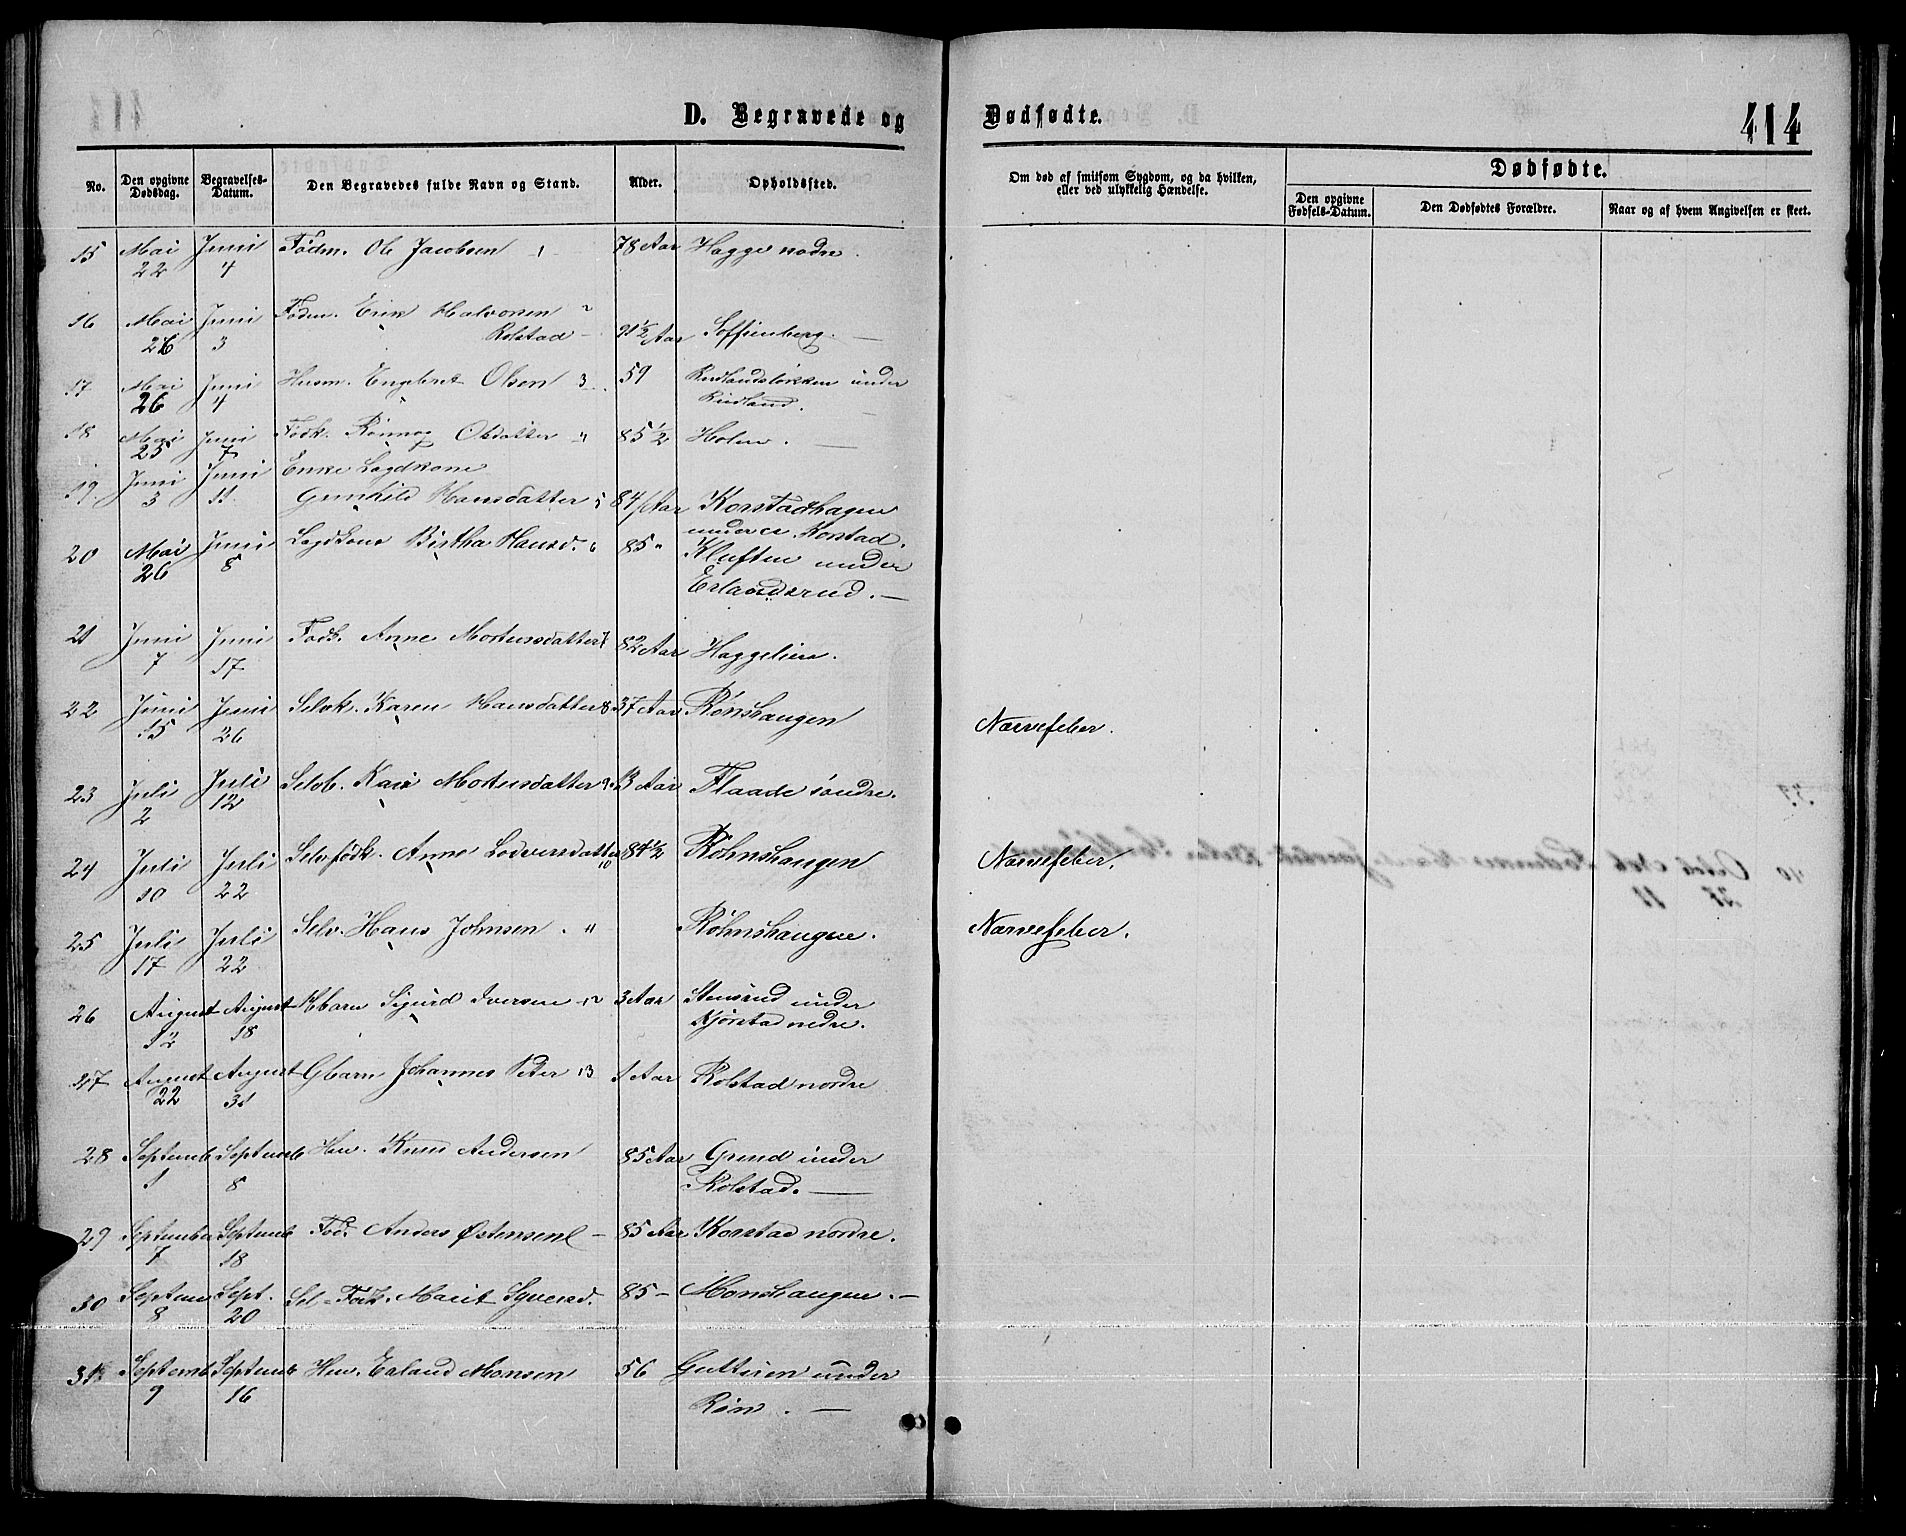 D. Begravede og Dødfødte. 414
No. Den opgivne Dødsdag. Begravelses-Datum. Den Begravedes fulde Navn og Stand. Alder. Opholdssted. Om død af smitsom Sygdom, og da hvilken, eller ved ulykkelig Hændelse. Dødfødte.
Den opgivne Fødsels-Datum. Den Dødfødtes Forældre. Naar og af hvem Angivelsen er skeet.
15 Mai 22 Juni 4 Fødm. Ole Jacobsen 1 78 Aar Hagge nødre.
16 Mai 26 Juni 3 Fødm. Erik Halvorsen Rolstad 2 91 1/2 Aar Soffienberg. —
17 Mai 26 Juni 4 Husm. Engebret Olsen 3 59 Rudlandsløkken under Rudland.
18 Mai 25 Juni 7 Fødk. Rønnog Olsdatter 4 85 1/2 Holen. —
19 Juni 3 Juni 11 Enke Legdkone Gunhild Hansdatter 5 84 Aar Korstadhagen under Korstad.
20 Mai 26 Juni 8 Legdkone Birtha Hansd. 6 85 " Kluften under Erlandsrud. —
21 Juni 7 Juni 17 Fødk. Anne Mortensdatter 7 82 Aar Haggelien.
22 Juni 15 Juni 26 Selvk. Karen Hansdatter 8 37 Aar Rønshaugen Nærvefeber.
23 Juli 2 Juli 12 Selvb. Kari Mortensdatter 9 13 Aar Flaade søndre.
24 Juli 10 Juli 22 Selvfødk. Anne Lodversdatter 10 84 1/2 Røhnshaugen Nærvefeber.
25 Juli 17 Juli 22 Selv. Hans Johnsen. 11 Røhnshaugen. Nærvefeber.
26 August 12 August 18 Hbarn Sigurd Iversen 12 3 Aar Stensrud under Kjørstad nedre.
27 August 22 August 31 Gbarn Johannes Peter 13 1 Aar Rolstad nordre
28 Septemb 1 Septemb 8 Hm. Knud Andersen 85 Aar Grind under Rolstad. —
29 September 7 Septemb 18 Fød. Anders Østensen — 85 Aar Korstad nordre.
30 Septem 8 Sept. 20 Sel-Fødk. Marit Syversd. 85 — Monshaugen. —
31 Septemb 9 Septemb 16 Hm. Erland Monsen 56 under Røn. —